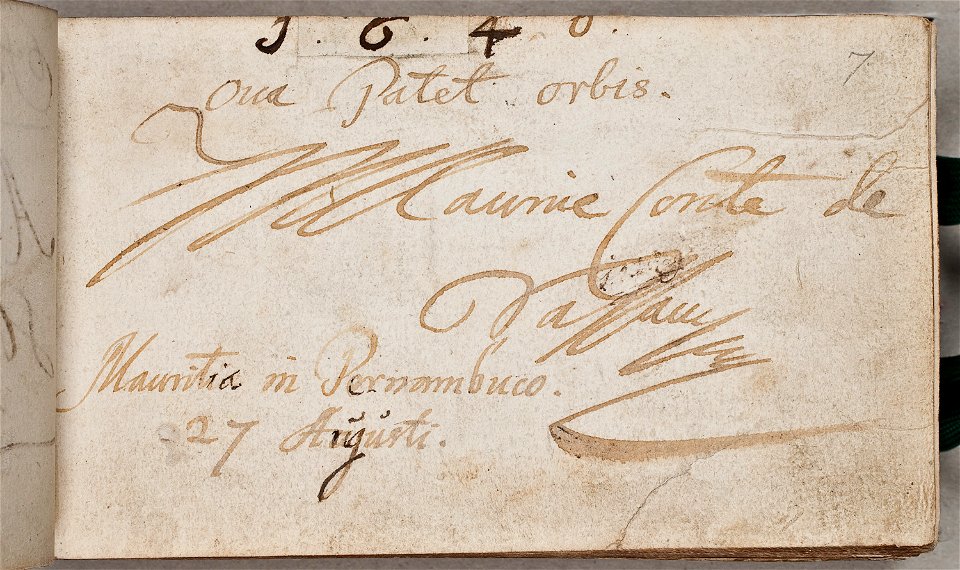 1.6.4.0.
7
Qua Patet orbis.
Maurice Conte de
Nassau
Mauritia in Pernambuco.
27 Augusti.